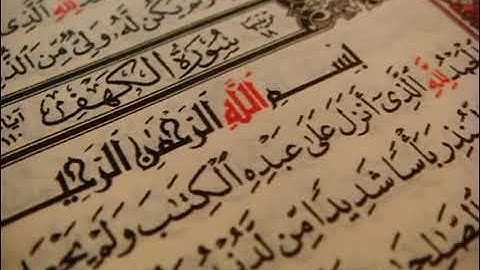 وَلَمْ يَكُن لَّهُ وَلِىٌّ مِّنَ الذُّ
سُورَةُ الكَهْفِ
بِسْمِ اللَّهِ الرَّحْمَٰنِ الرَّحِيمِ
الْحَمْدُ لِلَّهِ الَّذِىٓ أَنزَلَ عَلَىٰ عَبْدِهِ الْكِتَٰبَ وَلَمْ يَجْعَل
لِّيُنذِرَ بَأْسًا شَدِيدًا مِّن لَّدُنْهُ
الصَّٰلِحَٰتِ